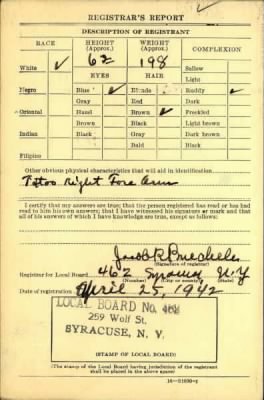 REGISTRAR'S REPORT
DESCRIPTION OF REGISTRANT
RACE HEIGHT (Approx.) WEIGHT (Approx.) COMPLEXION
White ✓ 62 198 Sallow
EYES HAIR Light
Negro Blue ✓ Blonde Ruddy ✓
Gray Red Dark
Oriental Hazel Brown ✓ Freckled
Brown Black Light brown
Indian Black Gray Dark brown
Bald Black
Filipino
Other obvious physical characteristics that will aid in identification
Tatoo Right Fore Arm
I certify that my answers are true; that the person registered has read or has had
read to him his own answers; that I have witnessed his signature or mark and that
all of his answers of which I have knowledge are true, except as follows:
Jacob R
(Signature of registrar)
Registrar for Local Board 462 Syracuse N.Y
(Number) (City or county) (State)
Date of registration April 25, 1942
LOCAL BOARD No. 462
259 Wolf St.
SYRACUSE, N. Y.
(STAMP OF LOCAL BOARD)
(The stamp of the Local Board having jurisdiction of the registrant
shall be placed in the above space)